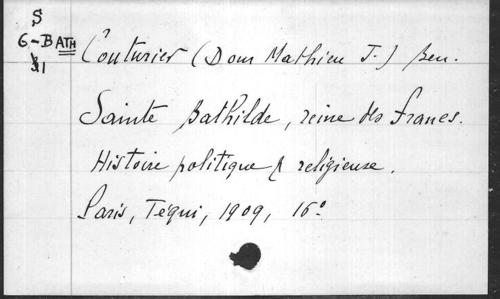 S
6-BATH
Couturier (Dom Mathieu J.) Ben.
Sainte Bathilde, reine des francs.
Histoire politique & religieuse.
Paris, Téqui, 1909, 16º